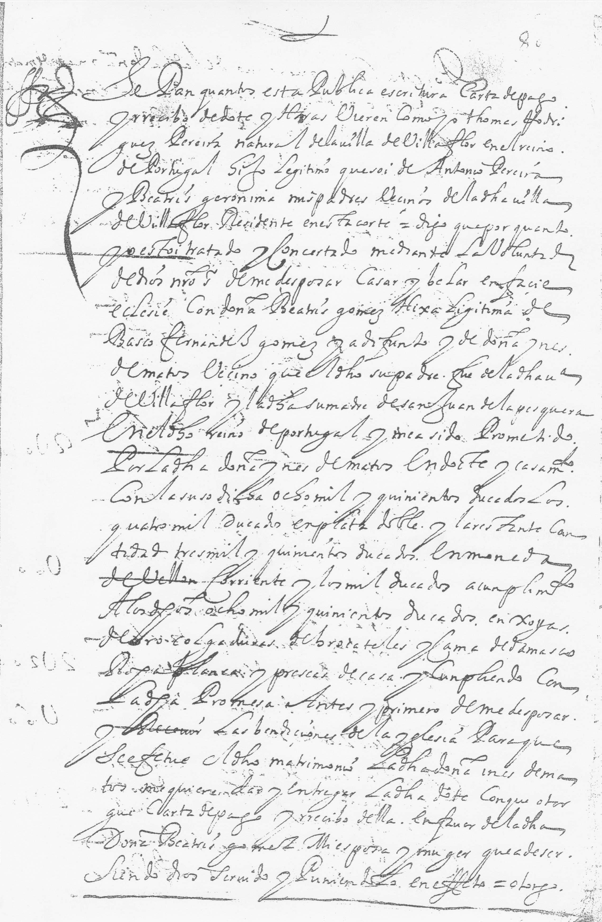 Sepan quantos esta Publica escritura Carta depago
y rrecibo de dote y Arras Vieren Como yo thomas Rodri
guez Pereira natural de la villa de Villaflor en el reino
de Portugal hijo Legitimo que soi de Antonio Pereira
y Beatris geronima mis padres Vecinos de la dha villa
de Villaflor Recidente en esta corte = digo que por quanto
yo estoi tratado y Concertado mediante La Voluntad
de dios nro s.r de me desposar Casar y belar en facie
eclesie Con doña Beatris gomez Hixa Legitima de
Basco fernandes gomez ya difunto y de doña ynes
de matos Vecino que el dho su padre fue de la dha va
de Villaflor y la dha su madre de san Juan de la pesquera
En el dho reino de portugal y me a sido Prometido
Por La dha doña ynes de matos En docte y casamto
Con la suso dicha ocho mil y quinientos ducados Los
quatro mil ducados en plata doble y la restante Can
tidad tres mil y quinientos ducados En moneda
de Vellon Corriente y los mil ducados a cunplimto
A los dhos ocho mil y quinientos ducados en xoyas
de oro colgaduras de brocateles y Cama de damasco
Ropa blanca y preseas de casa y Cunpliendo Con
La dha Promesa Antes y primero de me desposar
y Las bendiciones de la yglesia Para que
Se efetue el dho matrimonio La dha doña ines de ma
tos me quiere dar y entregar La dha dote Con que otor
gue Carta de pago y recibo della En favor de la dha
Doña Beatris gomez Mi esposa y muger que a de ser
Siendo dios Servido y Puniendolo en efecto = otorgo